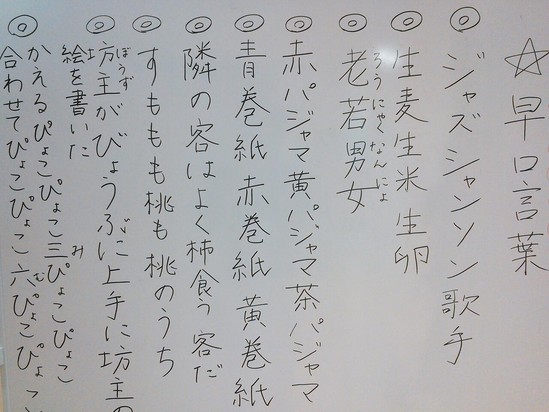 ☆早口言葉
◎ジャズシャンソン歌手
◎生麦生米生卵
ろうにゃくなんにょ
◎老若男女
◎赤パジャマ黄パジャマ茶パジャマ
◎青巻紙赤巻紙黄巻紙
◎隣の客はよく柿食う客だ
◎すももも桃も桃のうち
ぼうず
◎坊主がびょうぶに上手に坊主の
絵を書いた
み
◎かえるぴょこぴょこ三ぴょこぴょこ
む
合わせてぴょこぴょこ六ぴょこぴょ